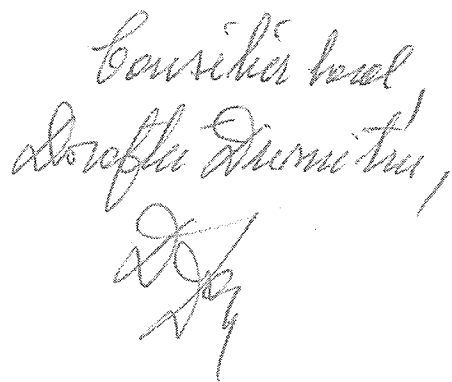 Consilier local,
Doroftei Dumitru,